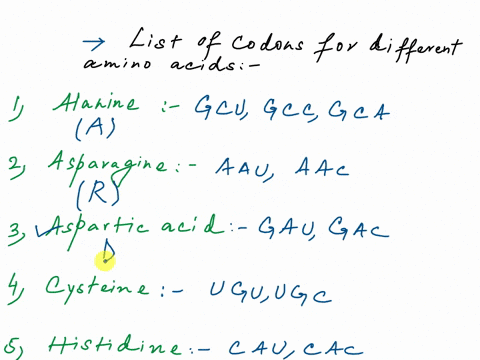 → List of codons for different
amino acids:-
1, Alanine :- GCU, GCC, GCA
(A)
2, Asparagine:- AAU, AAC
(R)
3, Aspartic acid:- GAU, GAC
D
4, Cysteine :- UGU, UGC
5, Histidine :- CAU, CAC